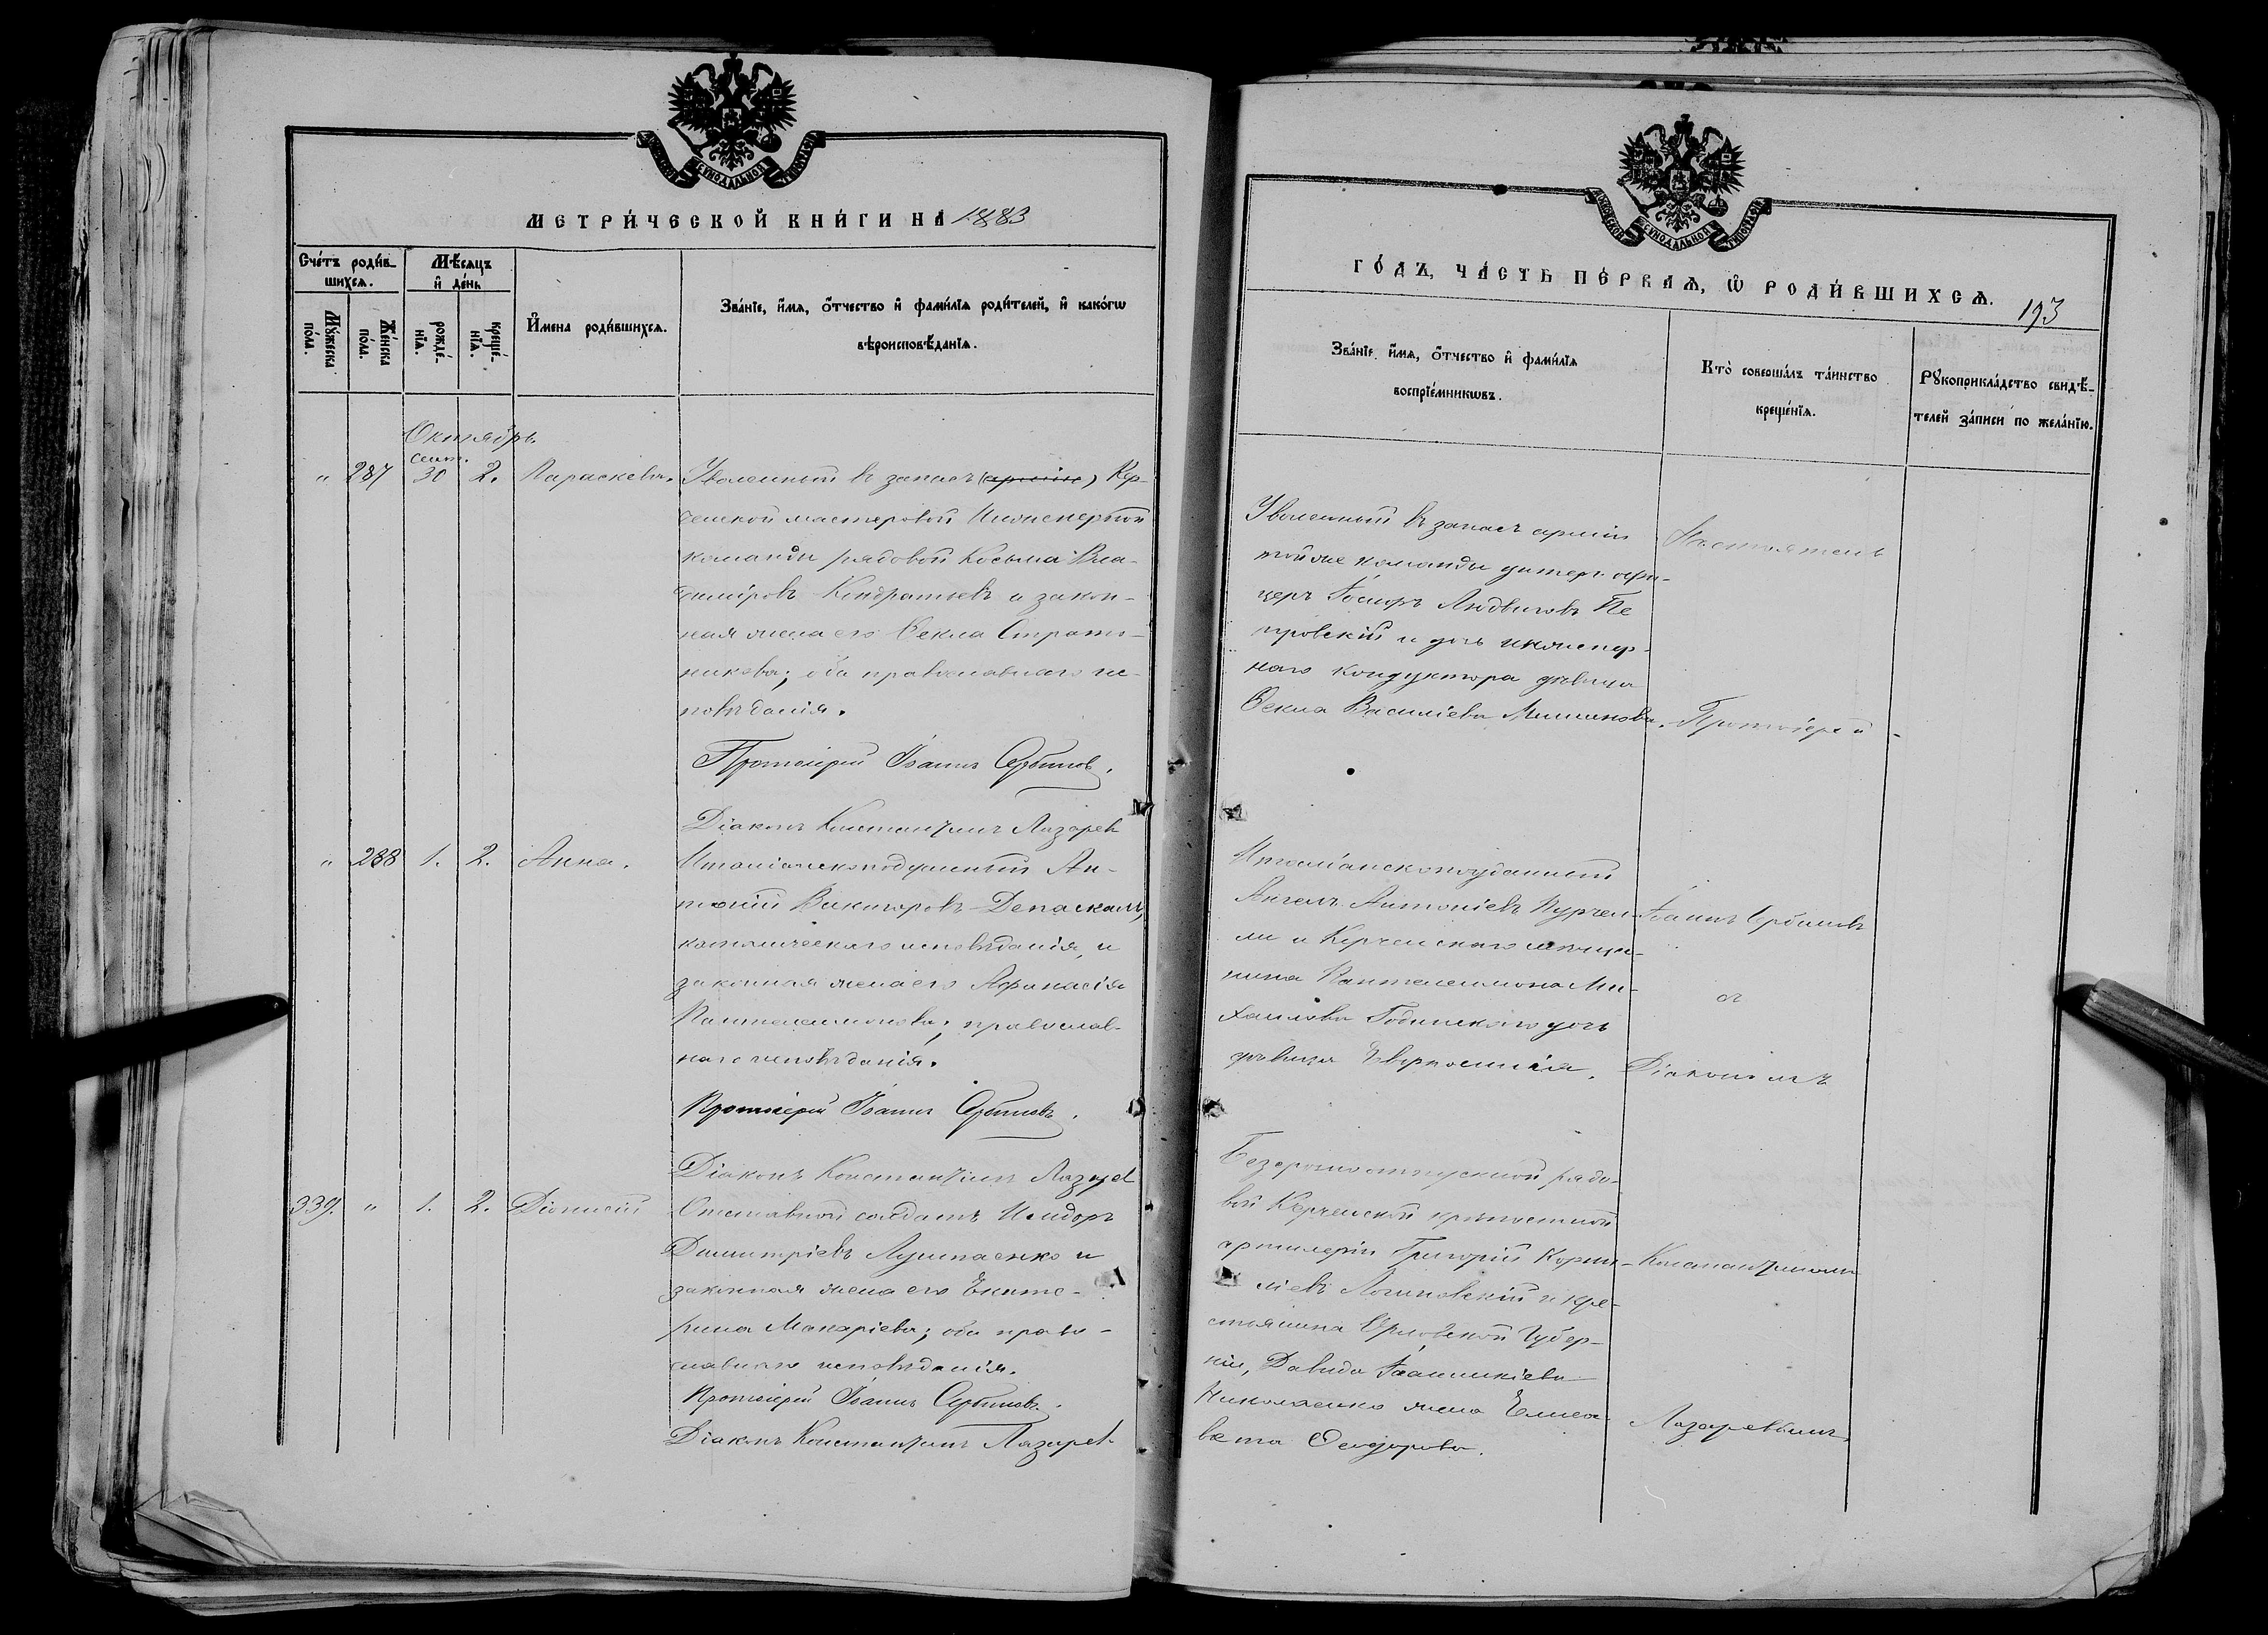 МЕТРИ́ЧЕСКОЙ КНИ́ГИ НА 1883
Сче́тъ роди́в-
шихсѧ.
Мѣ́сѧцъ
и҆ де́нь
Мꙋ́жеска
по́ла.
Же́нска
по́ла.
рожде́-
нїѧ.
креще́-
нїѧ.
И҆мена роди́вшихсѧ.
Зва́нїе, и҆́мѧ, ѻ҆́тчество и҆ фами́лїѧ роди́телей, и҆ како́гѡ
вѣроисповѣ́данїѧ.
Октябрь
" 287 сент. 30 2. Параскева. Уволенный въ запасъ (арміи) Кер-
ченской мастеровой Инженерной
команды рядовой Косьма Вла-
диміровъ Кондратьевъ и закон-
ная жена его Ѳекла Страто-
никова; оба православнаго ис-
повѣданія.
Протоіерей Іоаннъ Сербиновъ.
Діаконъ Константинъ Лазарев
" 288 1. 2. Анна. Италіанскоподданный Ан-
тоній Викторовъ Депаскалъ,
католическаго исповѣданія, и
законная жена его Аѳанасія
Пантелеимонова; православ-
наго исповѣданія.
Протоіерей Іоаннъ Сербиновъ.
Діаконъ Константинъ Лазарев
339. " 1. 2. Діонисій Отставной солдатъ Исидоръ
Димитріевъ Лушпаенко и
законная жена его Екате-
рина Макаріева; оба право-
славнаго исповѣданія.
Протоіерей Іоаннъ Сербиновъ.
Діаконъ Константинъ Лазарев
ГО́ДЪ, ЧА́СТЬ ПЕ́РВАѦ, Ѡ҆ РОДИ́ВШИХСѦ.
193
Зва́нїе, и҆́мѧ, ѻ҆́тчество и҆ фами́лїѧ
воспрїе́мникѡвъ.
Кто̀ соверша́лъ та́инство
креще́нїѧ.
Рꙋкоприкла́дство свидѣ́-
телей за́писи по жела́нїю.
Уволенный въ запасъ арміи
той же команды унтеръ-офи-
церъ Іосифъ Людвиговъ Пе
тровскій и дочь инженер-
наго кондуктора дѣвица
Ѳекла Василіева Мишинова.
Настоятель
Протоіерей
Италіанскоподданный
Ангелъ Антоніевъ Пурчел-
ли и Керченскаго мѣща-
нина Пантелеимона Ми-
хаилова Годинскаго дочь
дѣвица Евфросинія.
Іоаннъ Сербиновъ
съ
Діакономъ
Безсрочноотпускной рядо-
вой Керченской крѣпостной
артилеріи Григорій Корни-
ліевъ Логиновскій и кре-
стьянина Орловской Губер-
ніи, Давида Іоанникіева
Николаенко жена Елиса-
вета Ѳеодорова.
Константиномъ
Лазаревымъ